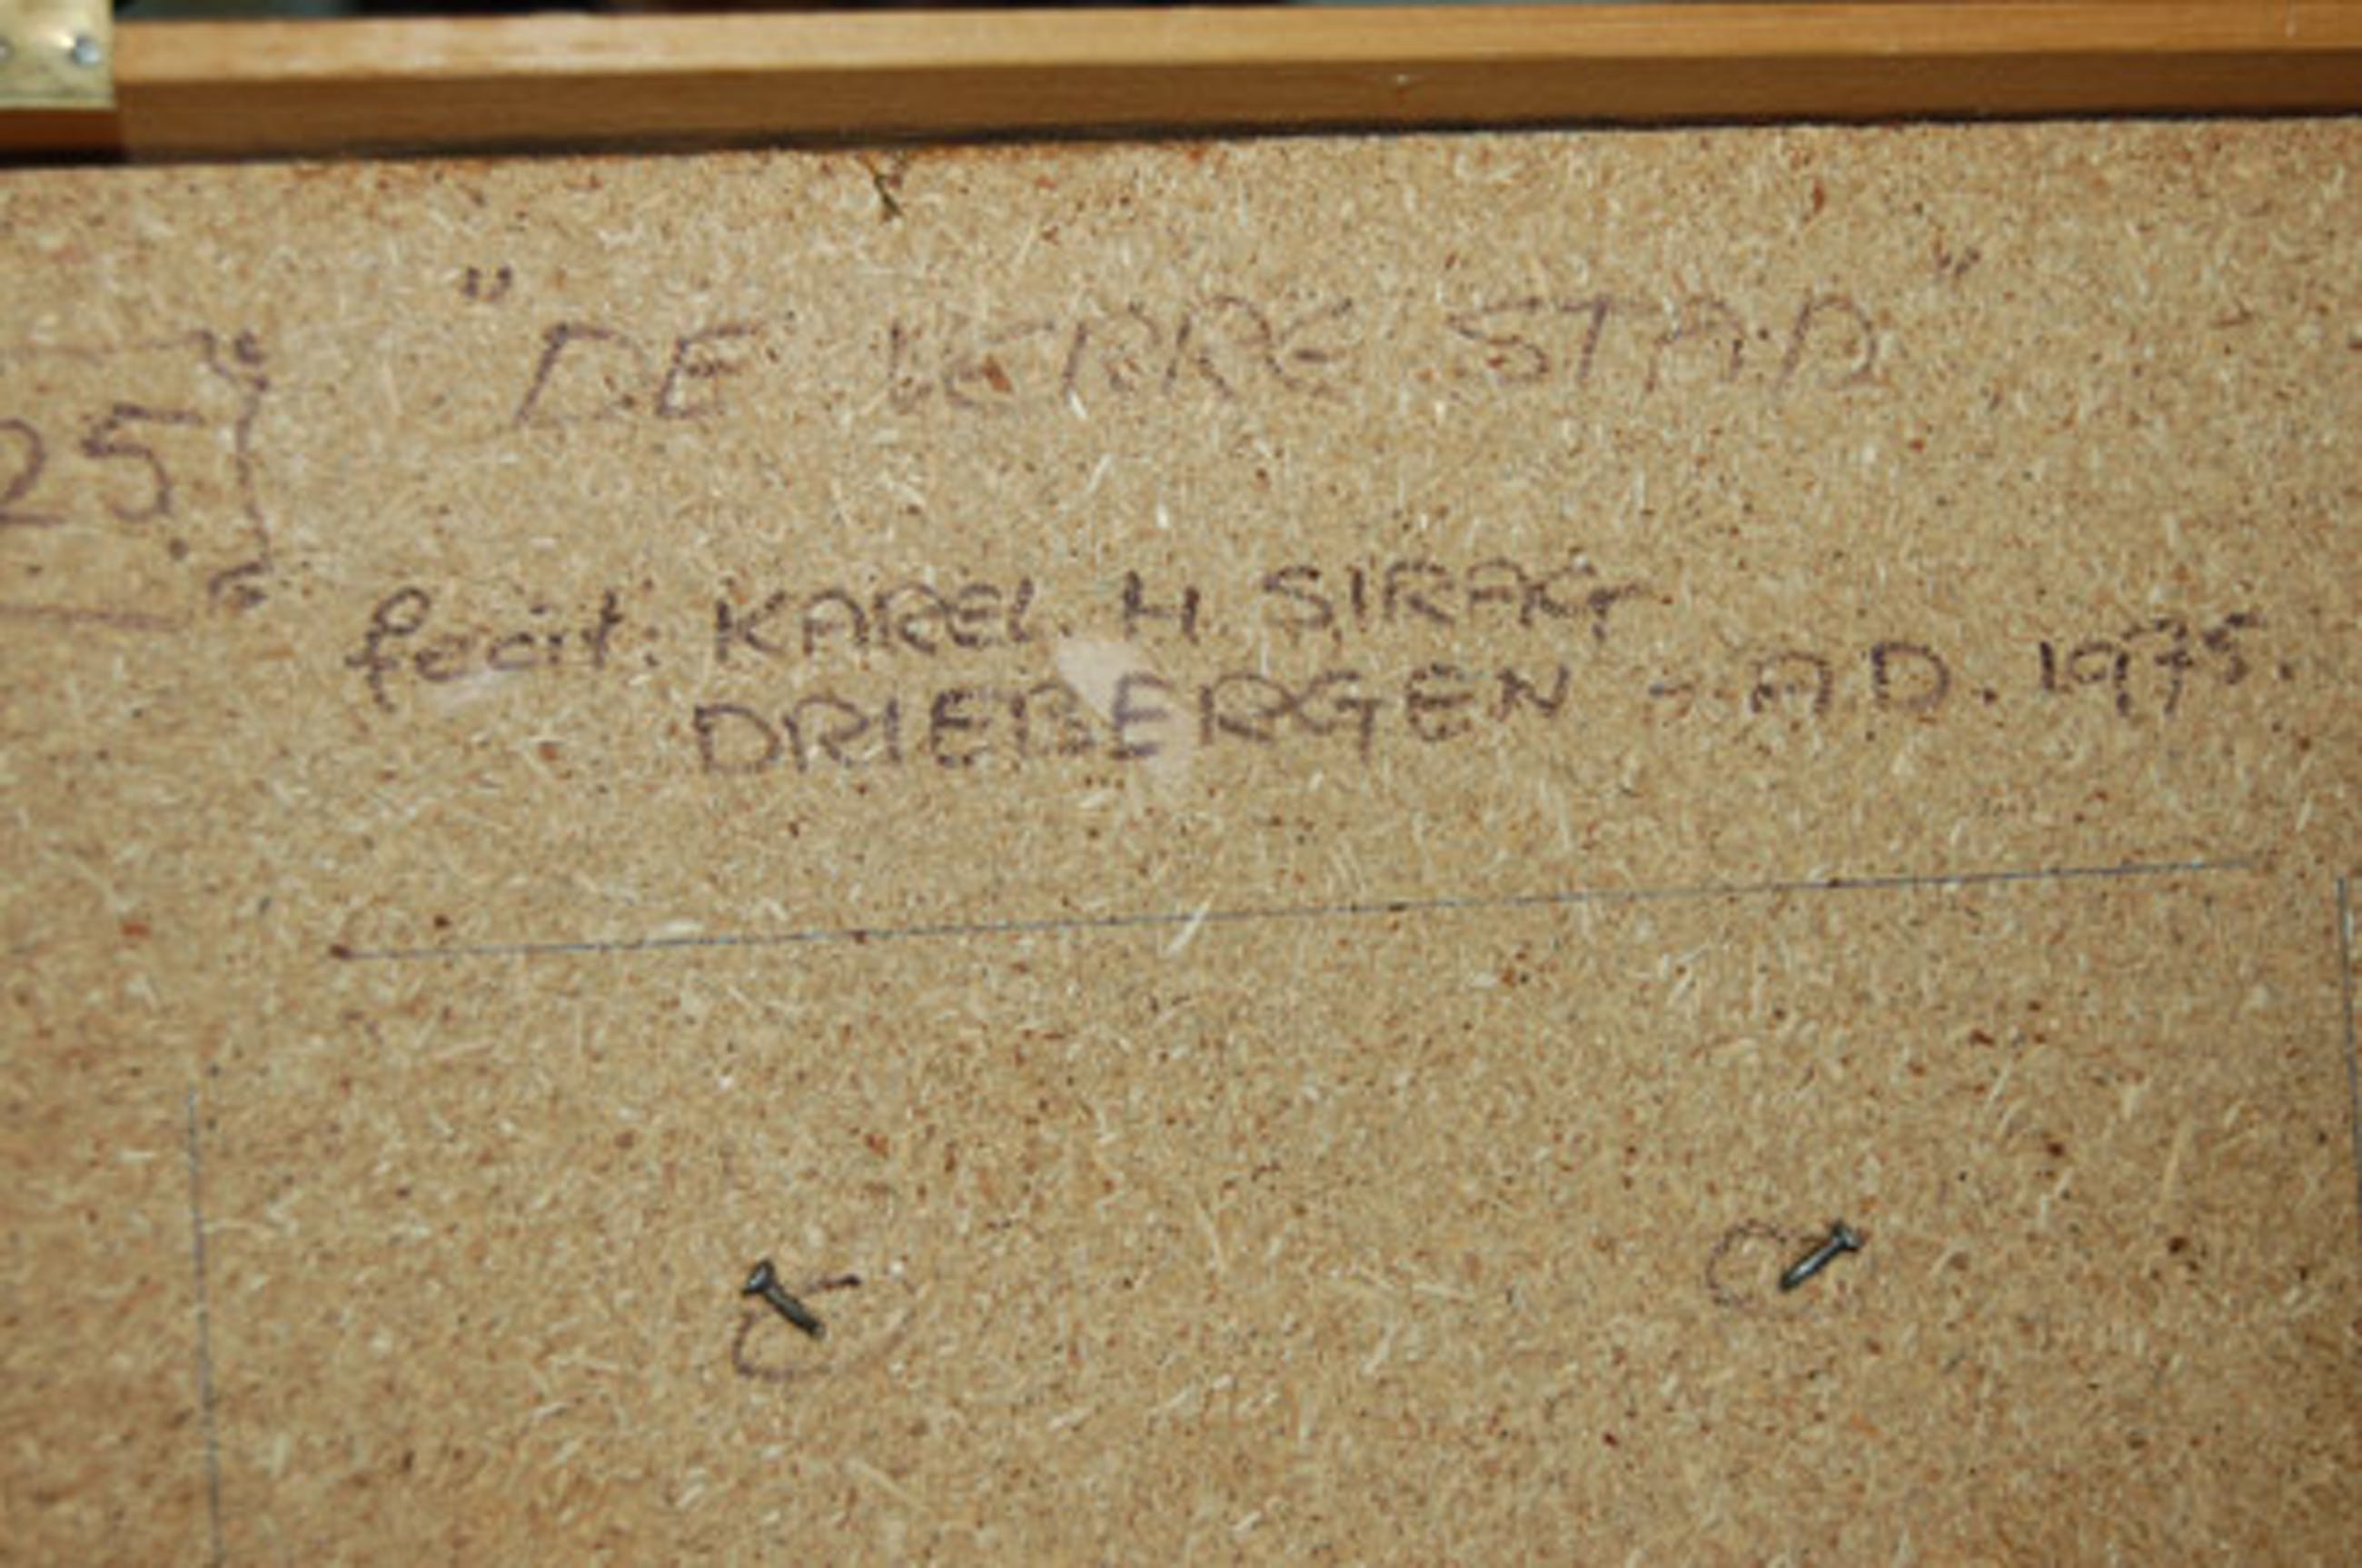 "DE VERRE STAD"
25.
fecit: KAREL H SIRAG
DRIEBERGEN - A.D. 1975.